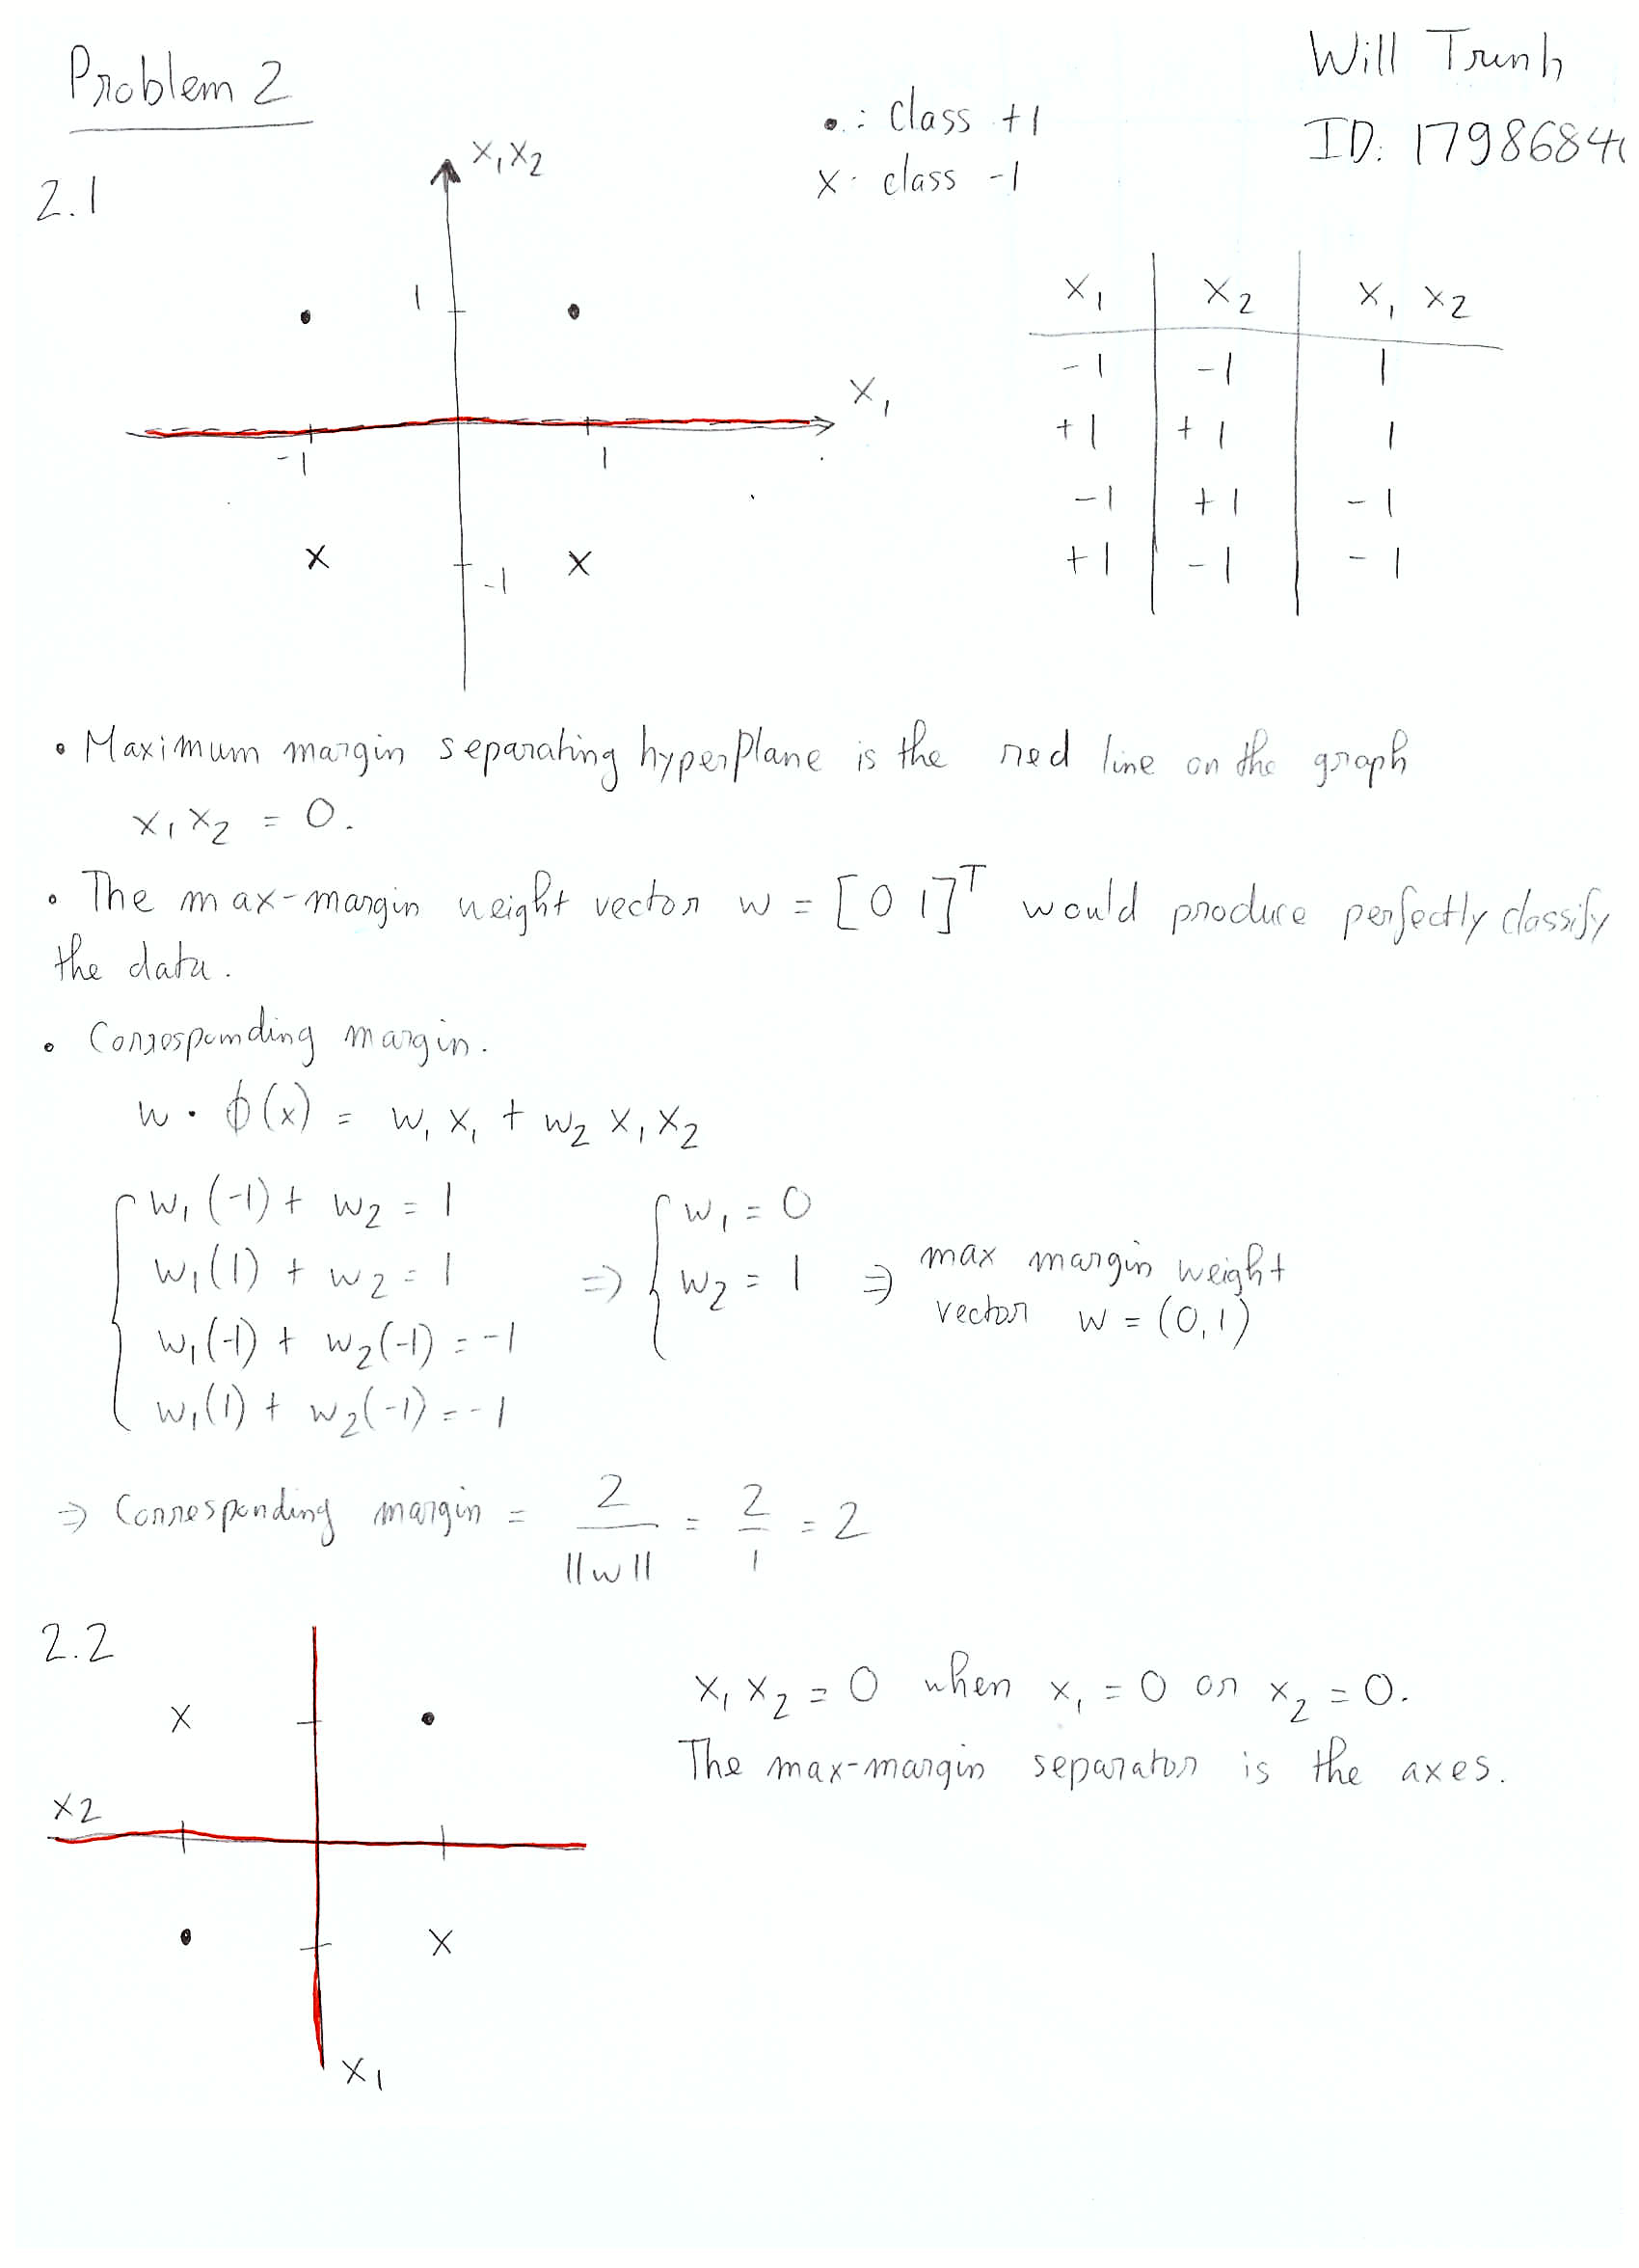 Problem 2
Will Trinh
ID: 1798684
•: class +1
x: class -1
2.1
x₁x₂
1
x₁
-1
1
-1
x₁ x₂ x₁ x₂
-1 -1 1
+1 +1 1
-1 +1 -1
+1 -1 -1
• Maximum margin separating hyperplane is the red line on the graph
x₁x₂ = 0.
• The max-margin weight vector w = [0 1]ᵀ would produce perfectly classify
the data.
• Corresponding margin.
w · ϕ(x) = w₁ x₁ + w₂ x₁ x₂
w₁(-1) + w₂ = 1
w₁(1) + w₂ = 1
w₁(-1) + w₂(-1) = -1
w₁(1) + w₂(-1) = -1
⇒ w₁ = 0
w₂ = 1
⇒ max margin weight
vector w = (0,1)
⇒ Corresponding margin = 2/||w|| = 2/1 = 2
2.2
x
x₂
x
x₁
x₁ x₂ = 0 when x₁ = 0 or x₂ = 0.
The max-margin separator is the axes.